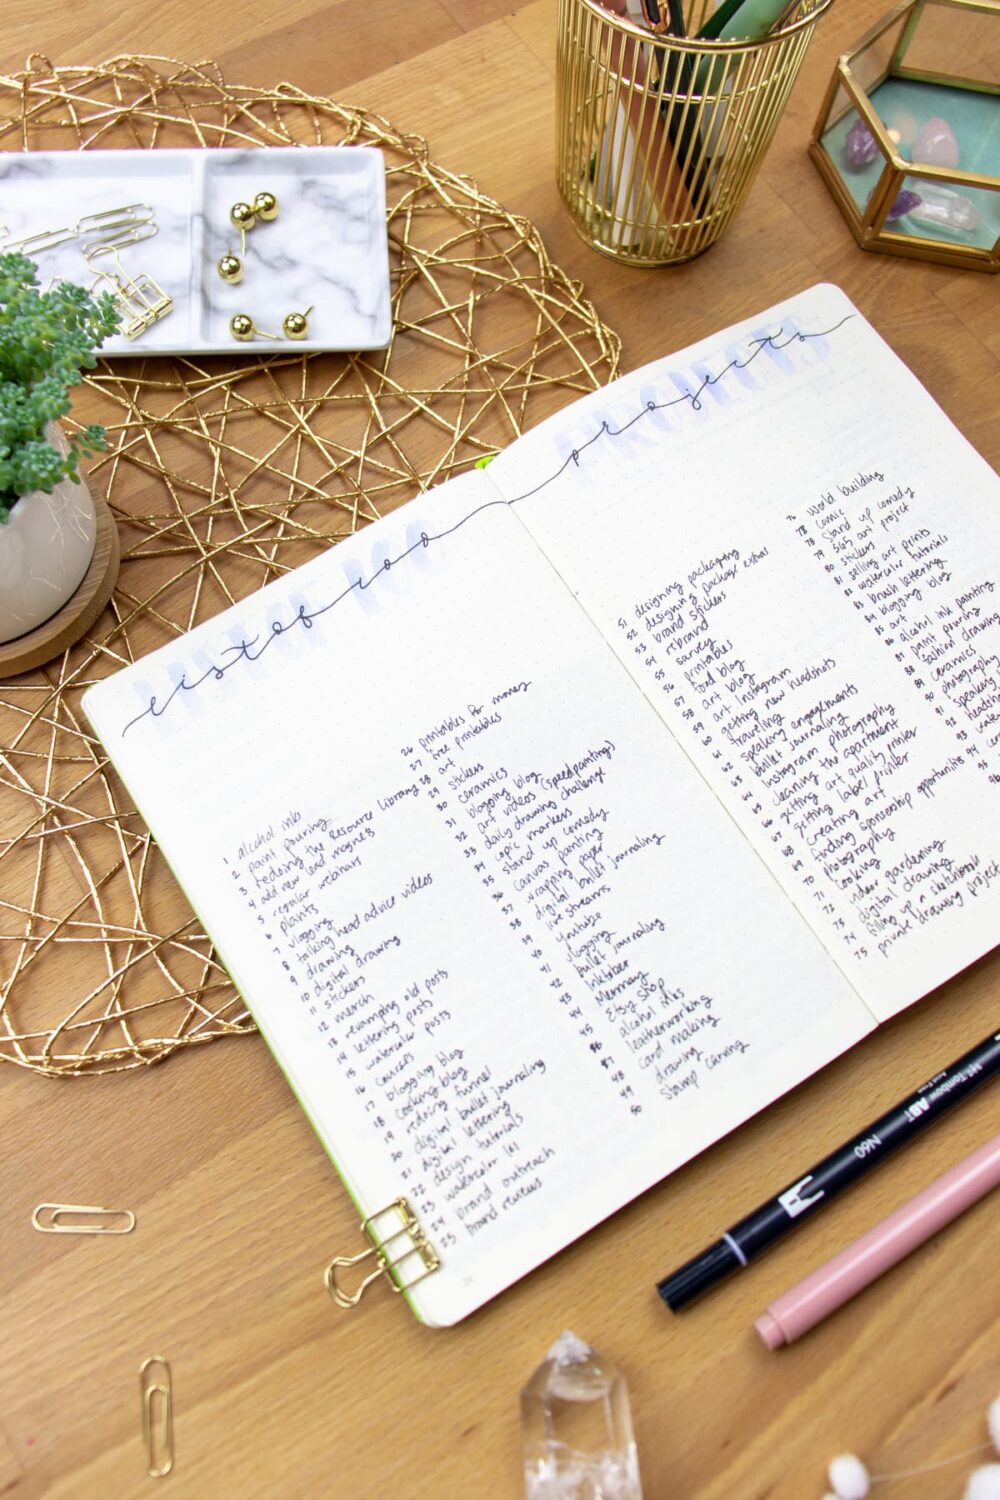 list of 100
projects
LIST OF 100
PROJECTS
1 alcohol inks
2 paint pouring
3 redoing the Resource Library
4 add new lead magnets
5 regular webinars
6 plants
7 vlogging
8 talking head advice videos
9 drawing
10 digital drawing
11 stickers
12 merch
13 revamping old posts
14 lettering posts
15 watercolor posts
16 courses
17 blogging blog
18 cooking blog
19 redoing funnel
20 digital bullet journaling
21 digital lettering
22 design tutorials
23 watercolor 101
24 brand outreach
25 brand reviews
26 printables for money
27 free printables
28 art
29 stickers
30 ceramics
31 blogging blog
32 art videos (speedpaintings)
33 daily drawing challenge
34 copic markers
35 stand up comedy
36 canvas painting
37 wrapping paper
38 digital bullet journaling
39 live streams
40 youtube
41 vlogging
42 bullet journaling
43 inktober
44 Mermay
45 Etsy shop
46 alcohol inks
47 leatherworking
48 card making
49 drawing
50 stamp carving
51 designing packaging
52 designing package extras
53 brand stickers
54 rebrand
55 survey
56 printables
57 food blog
58 art blog
59 art Instagram
60 getting new headshots
61 traveling
62 speaking engagements
63 bullet journaling
64 Instagram photography
65 cleaning the apartment
66 getting art quality printer
67 getting label printer
68 creating art
69 finding sponsorship opportunities
70 photography
71 cooking
72 indoor gardening
73 digital drawing
74 filling up a sketchbook
75 private drawing project
76 world building
77 comic
78 stand up comedy
79 365 art project
80 stickers
81 selling art prints
82 watercolor tutorials
83 brush lettering
84 blogging blog
85 art
86 alcohol ink painting
87 paint pouring
88 fashion drawing
89 ceramics
90 photography
91 speaking
92 headshots
93
94
95
96
Tombow ABT
N60